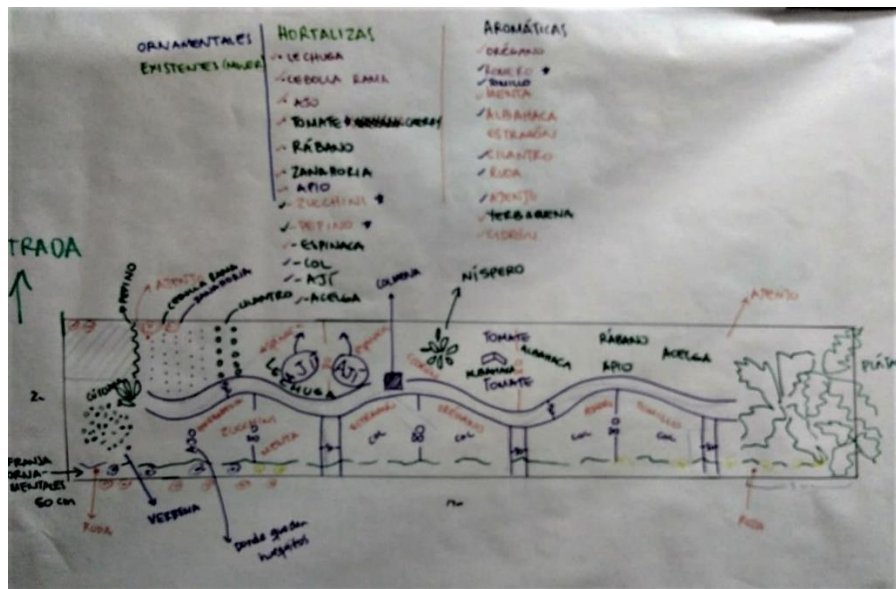 ORNAMENTALES
EXISTENTES
HORTALIZAS
LECHUGA
CEBOLLA RAMA
AJO
TOMATE
RÁBANO
ZANAHORIA
APIO
ZUCCHINI
PEPINO
ESPINACA
COL
AJÍ
ACELGA
AROMÁTICAS
ORÉGANO
ROMERO
TOMILLO
MENTA
ALBAHACA
ESTRAGÓN
CILANTRO
RUDA
AJENJO
YERBABUENA
CIDRÓN
TRADA
PEPINO
AJENJO
CEBOLLA RAMA
ZANAHORIA
CILANTRO
COLMENA
NÍSPERO
AJENJO
AJÍ
AJÍ
LECHUGA
TOMATE
ALBAHACA
ALBAHACA
TOMATE
RÁBANO
APIO
ACELGA
PLÁT
2-
ZUCCHINI
AJO
MENTA
80
COL
ORÉGANO
80
COL
COL
80
TOMILLO
COL
FRANJA
ORNA-
MENTALES
50 cm
RUDA
VERBENA
Donde queden
huequitos
RUDA